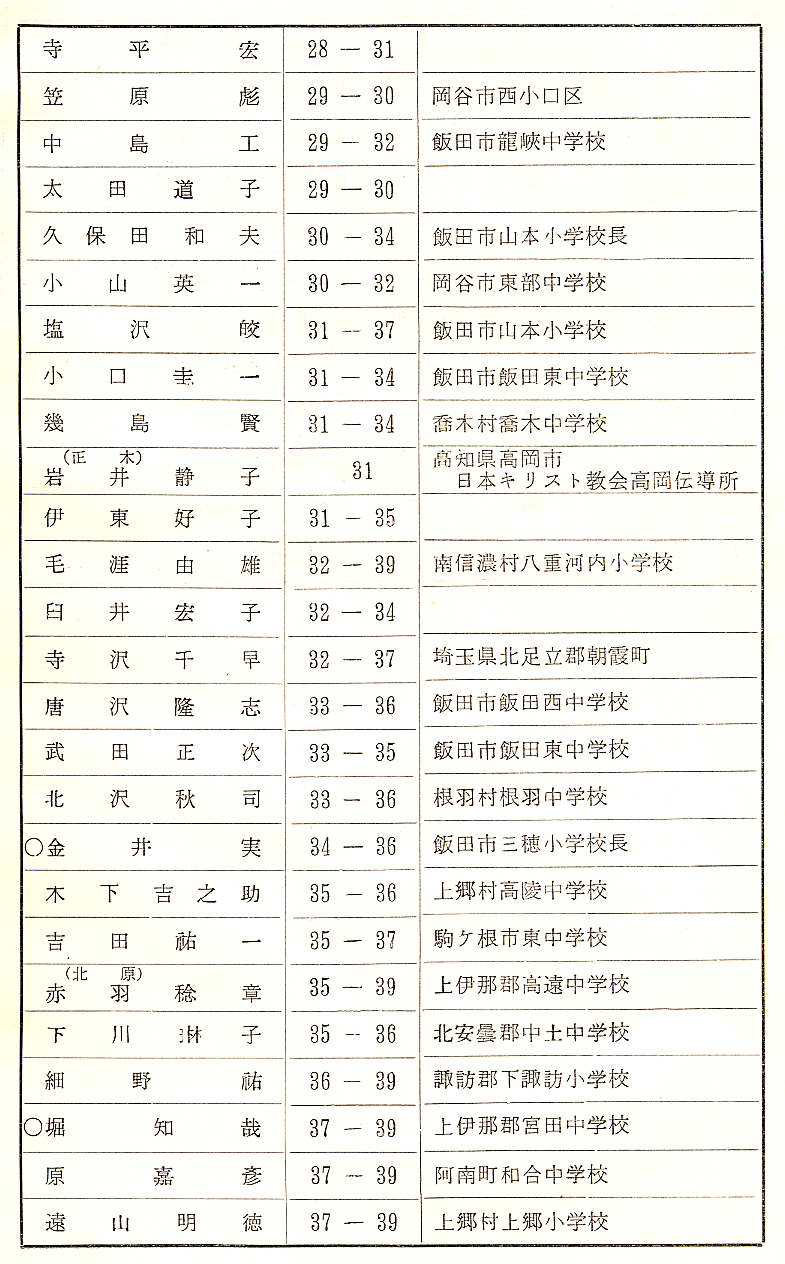 寺平宏 28 — 31
笠原彪 29 — 30 岡谷市西小口区
中島工 29 — 32 飯田市龍峡中学校
太田道子 29 — 30
久保田和夫 30 — 34 飯田市山本小学校長
小山英一 30 — 32 岡谷市東部中学校
塩沢皎 31 — 37 飯田市山本小学校
小口圭一 31 — 34 飯田市飯田東中学校
幾島賢 31 — 34 喬木村喬木中学校
(正木) 高知県高岡市
岩井静子 31 日本キリスト教会高岡伝導所
伊東好子 31 — 35
毛涯由雄 32 — 39 南信濃村八重河内小学校
臼井宏子 32 — 34
寺沢千早 32 — 37 埼玉県北足立郡朝霞町
唐沢隆志 33 — 36 飯田市飯田西中学校
武田正次 33 — 35 飯田市飯田東中学校
北沢秋司 33 — 36 根羽村根羽中学校
○金井実 34 — 36 飯田市三穂小学校長
木下吉之助 35 — 36 上郷村高陵中学校
吉田祐一 35 — 37 駒ケ根市東中学校
(北原)
赤羽稔章 35 — 39 上伊那郡高遠中学校
下川琳子 35 — 36 北安曇郡中土中学校
細野祐 36 — 39 諏訪郡下諏訪小学校
○堀知哉 37 — 39 上伊那郡宮田中学校
原嘉彦 37 — 39 阿南町和合中学校
遠山明徳 37 — 39 上郷村上郷小学校